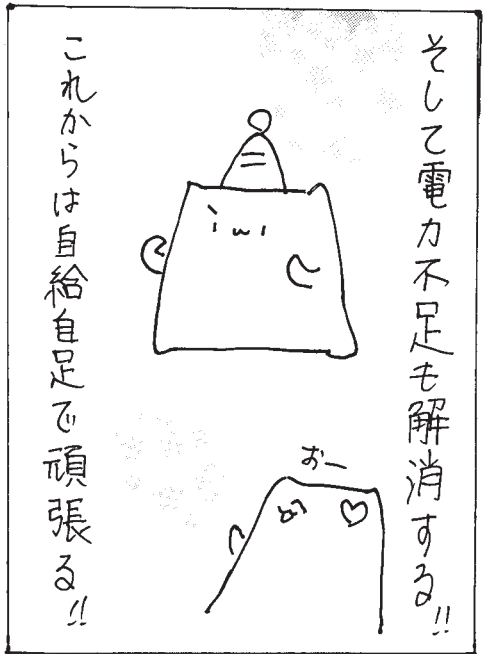 そして電力不足も解消する!!
これからは自給自足で頑張る!!
おー